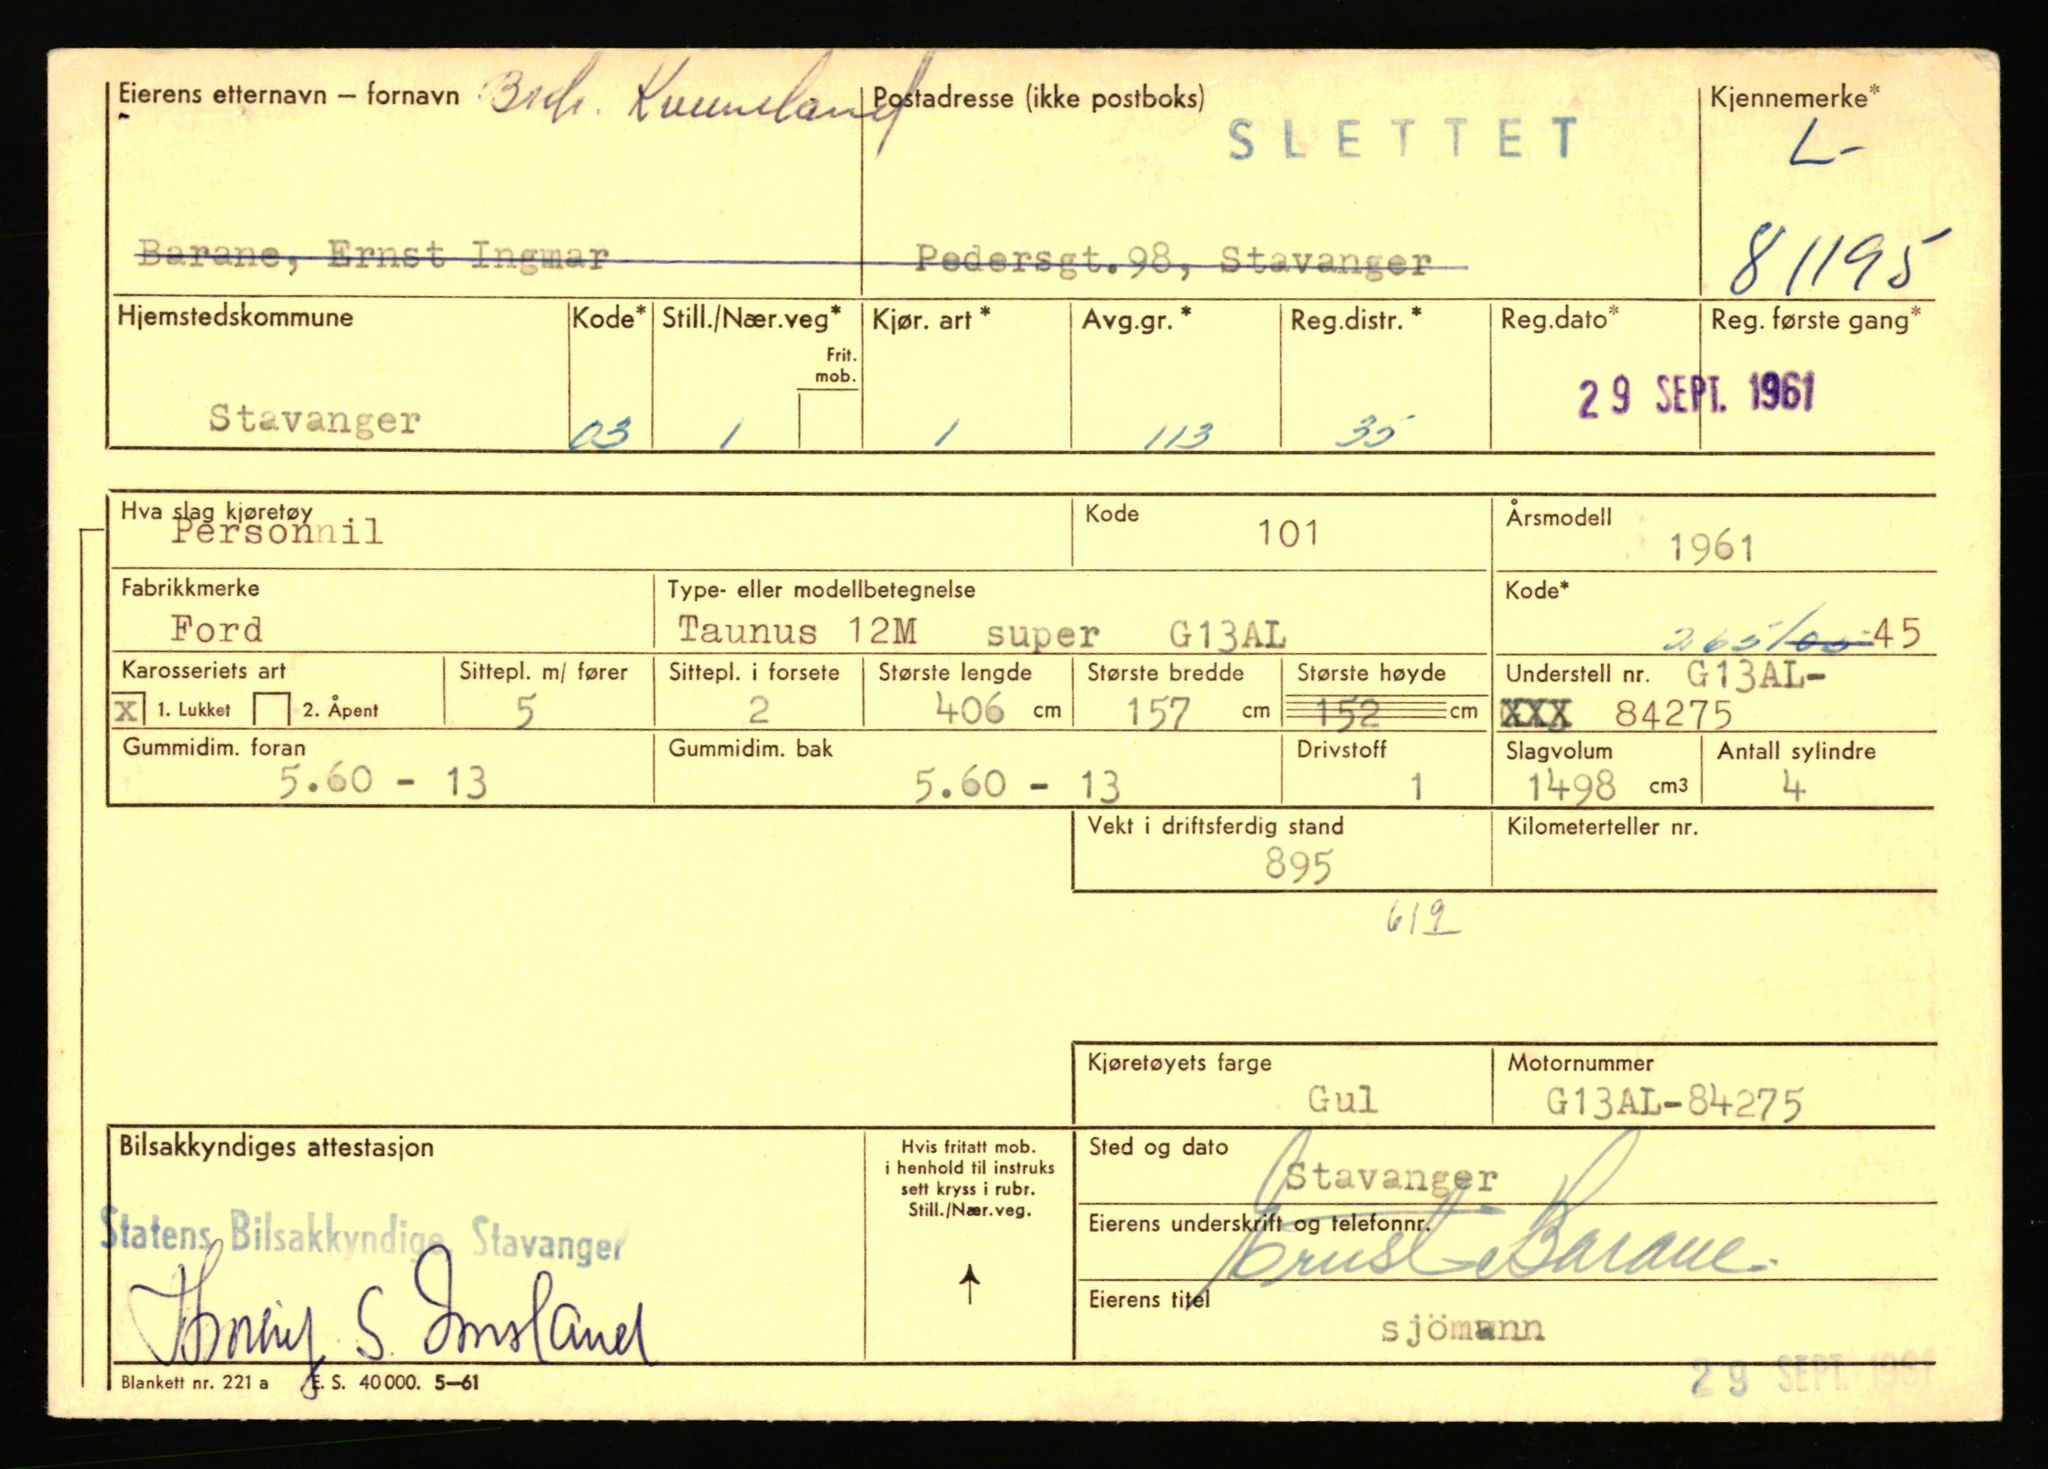 Eierens etternavn – fornavn Brdr. Kverneland Postadresse (ikke postboks) Kjennemerke*
SLETTET L-
Barane, Ernst Ingmar Pedersgt.98, Stavanger 81195
Hjemstedskommune Kode* Still./Nær.veg* Kjør. art * Avg.gr. * Reg.distr. * Reg.dato* Reg. første gang*
Frit.
mob.
29 SEPT. 1961
Stavanger 03 1 1 113 35
Hva slag kjøretøy Kode Årsmodell
Personnil 101 1961
Fabrikkmerke Type- eller modellbetegnelse Kode*
Ford Taunus 12M super G13AL 265/05 45
Karosseriets art Sittepl. m/ fører Sittepl. i forsete Største lengde Største bredde Største høyde Understell nr. G13AL-
X 1. Lukket 2. Åpent 5 2 406 cm 157 cm 152 cm XXX 84275
Gummidim. foran Gummidim. bak Drivstoff Slagvolum Antall sylindre
5.60 - 13 5.60 - 13 1 1498 cm3 4
Vekt i driftsferdig stand Kilometerteller nr.
895
619
Kjøretøyets farge Motornummer
Gul G13AL-84275
Bilsakkyndiges attestasjon Hvis fritatt mob. Sted og dato
i henhold til instruks
sett kryss i rubr.
Still./Nær.veg.
Stavanger
Statens Bilsakkyndige Stavanger Eierens underskrift og telefonnr.
Ernst Barane.
S. Imsland Eierens titel
sjömann
Blankett nr. 221 a E. S. 40 000. 5–61 29 SEPT. 1961